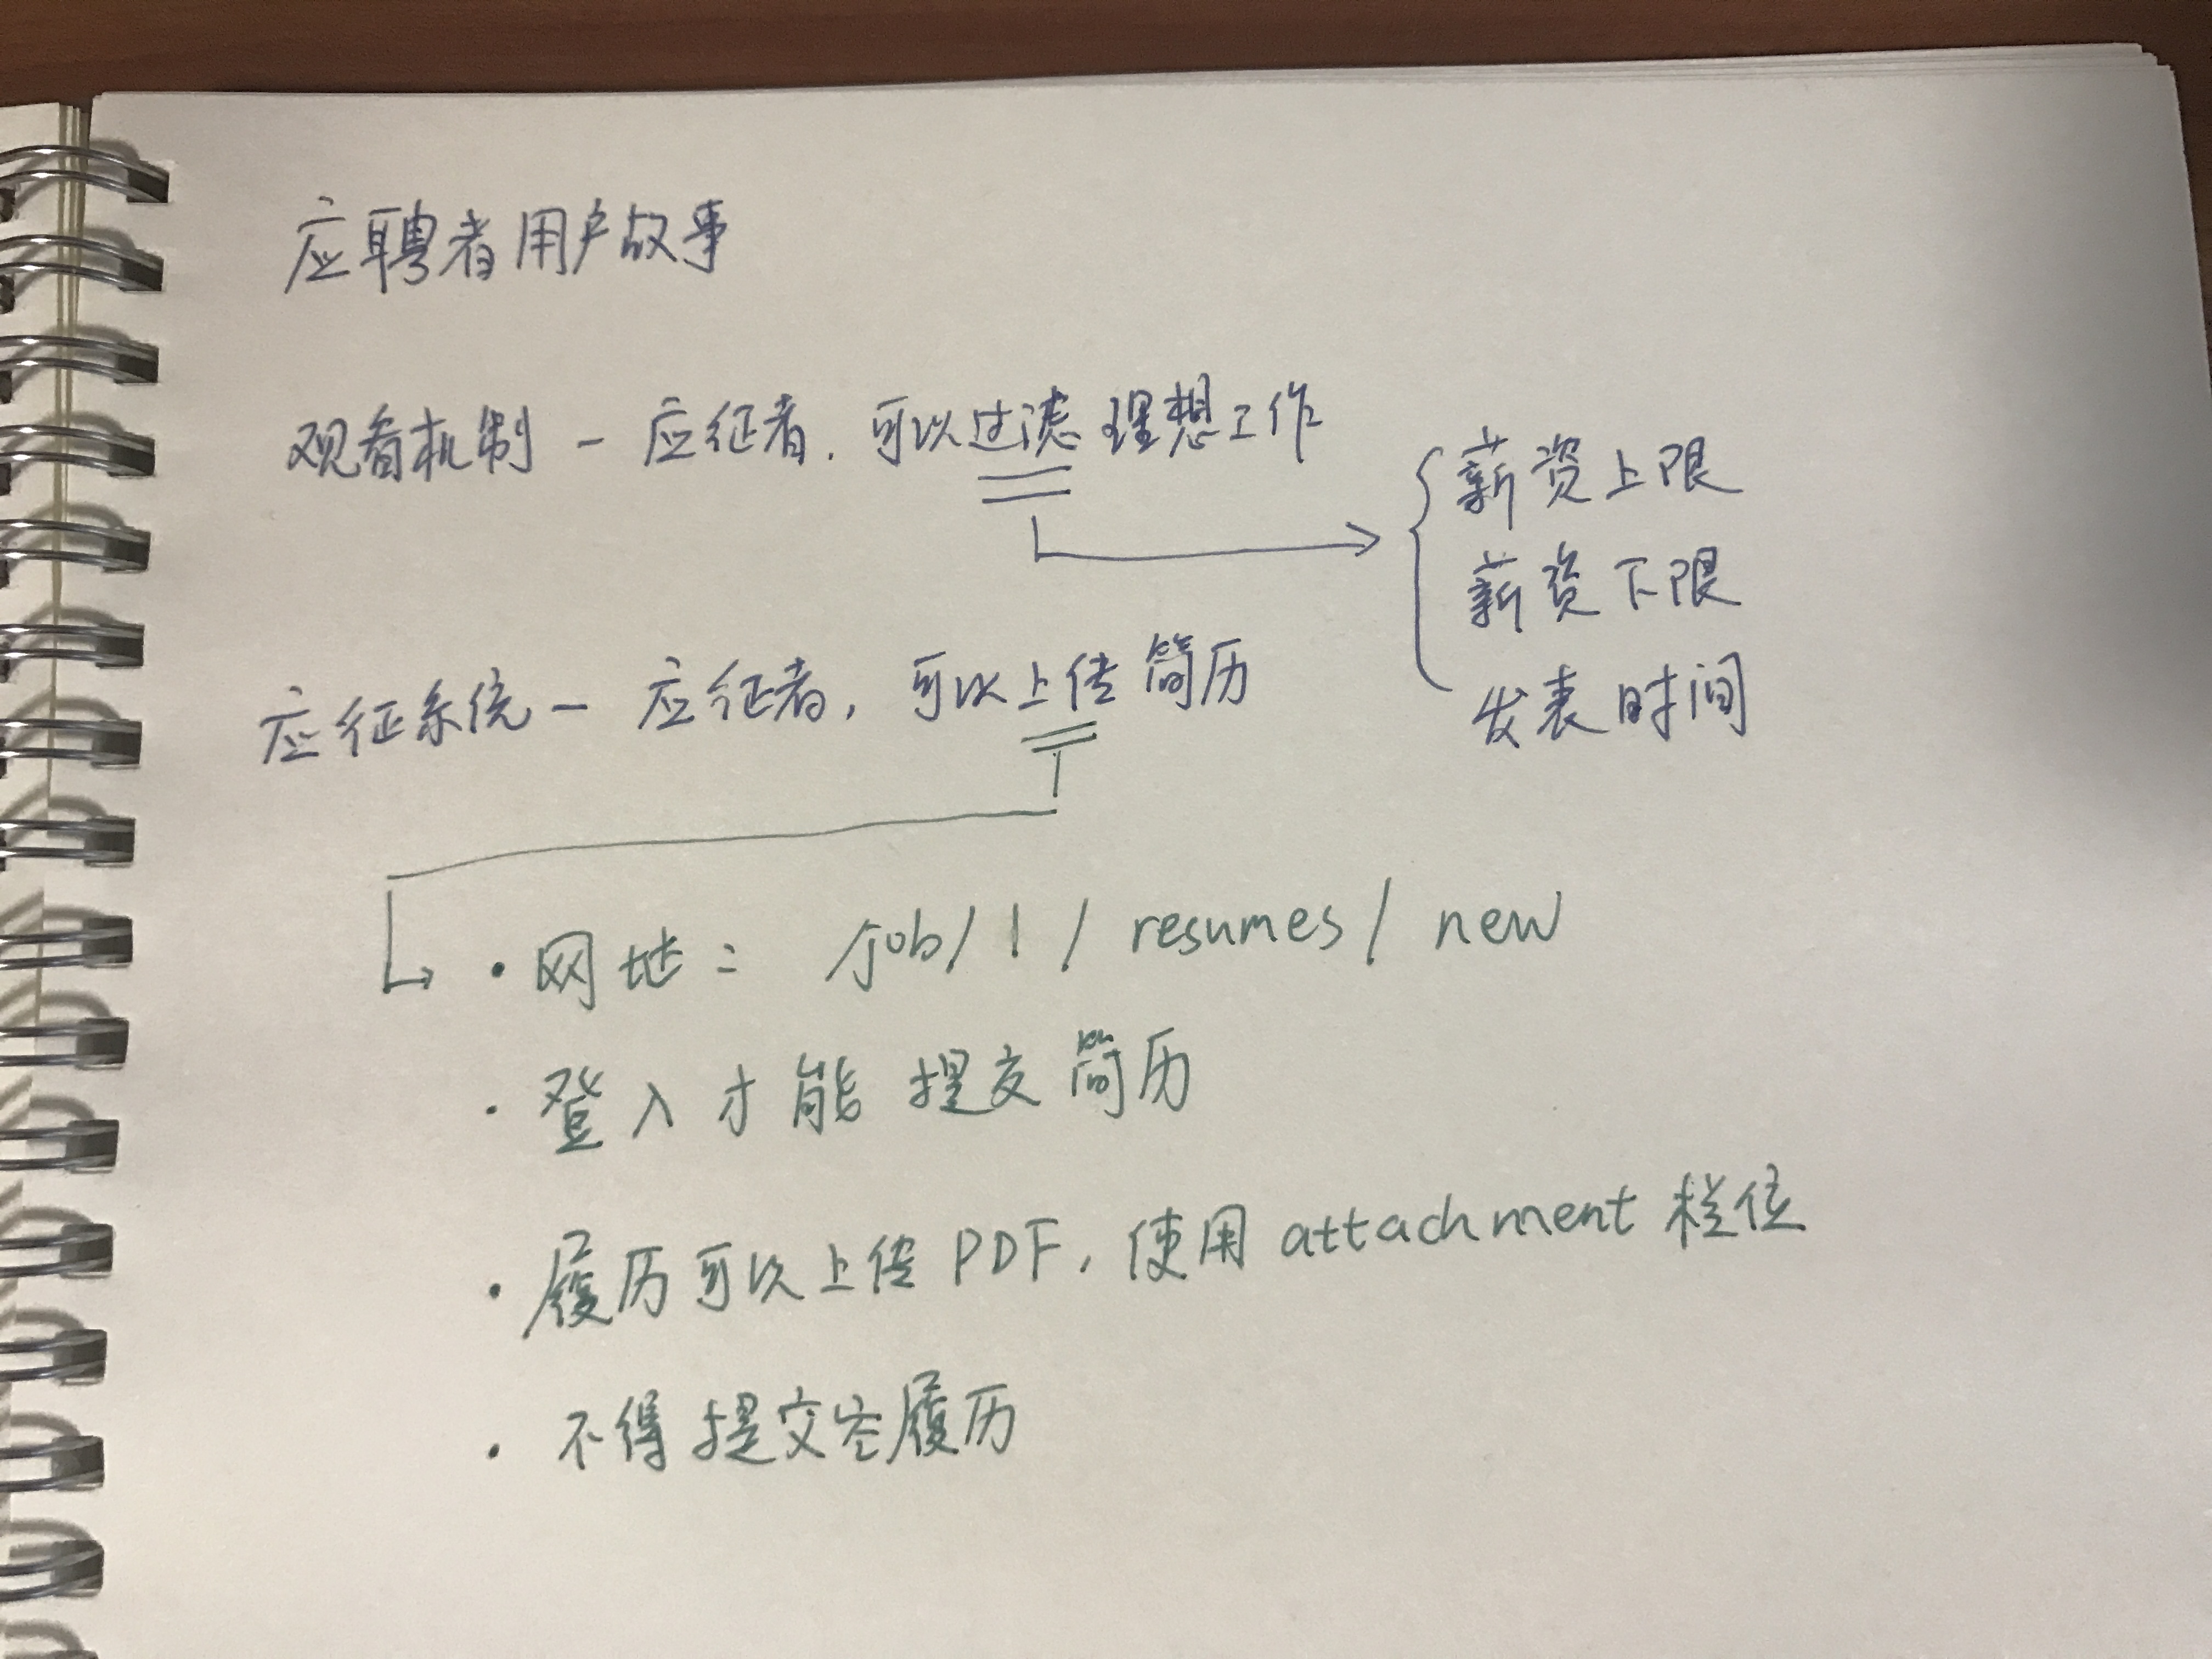 应聘者用户故事
观看机制 - 应征者. 可以过滤理想工作
薪资上限
薪资下限
发表时间
应征系统 - 应征者, 可以上传简历
· 网址: /job/1/resumes/new
· 登入才能提交简历
· 履历可以上传PDF, 使用attachment栏位
· 不得提交空履历